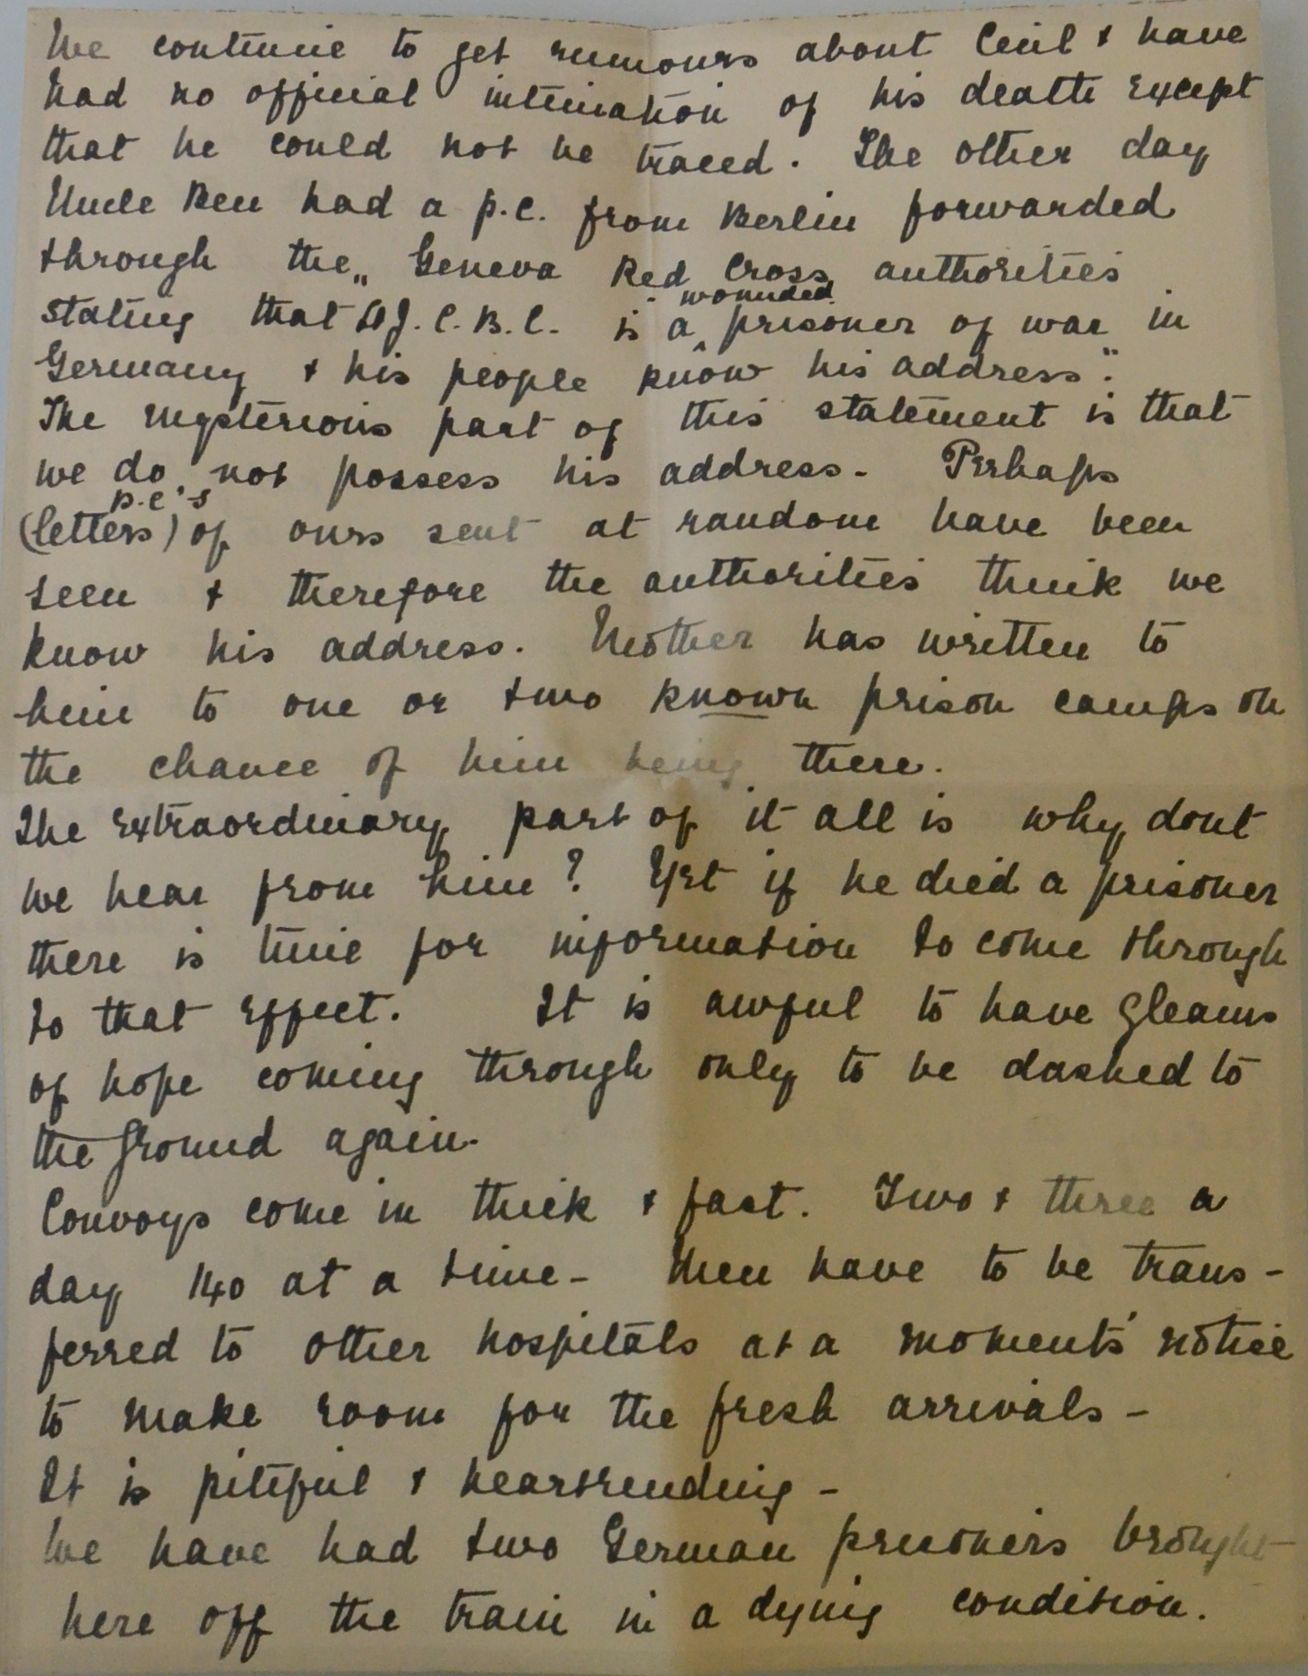 We continue to get rumours about Cecil & have
had no official intimation of his death except
that he could not be traced. The other day
Uncle Ben had a p.c. from Berlin forwarded
through the „ Geneva Red Cross authorities
wounded
stating that A J. C. B. C. is a ^ prisoner of war in
Germany & his people know his address".
The mysterious part of this statement is that
we do not possess his address - Perhaps
p.c's
(letters) of ours sent at random have been
seen & therefore the authorities think we
know his address. Mother has written to
him to one or two known prison camps on
the chance of him being there.
The extraordinary part of it all is why dont
we hear from him? Yet if he died a prisoner
there is time for information to come through
to that effect. It is awful to have gleams
of hope coming through only to be dashed to
the ground again.
Convoys come in thick & fast. Two & three a
day 140 at a time - Men have to be trans-
ferred to other hospitals at a moments' notice
to make room for the fresh arrivals -
It is pitiful & heartrending -
We have had two German prisoners brought
here off the train in a dying condition.